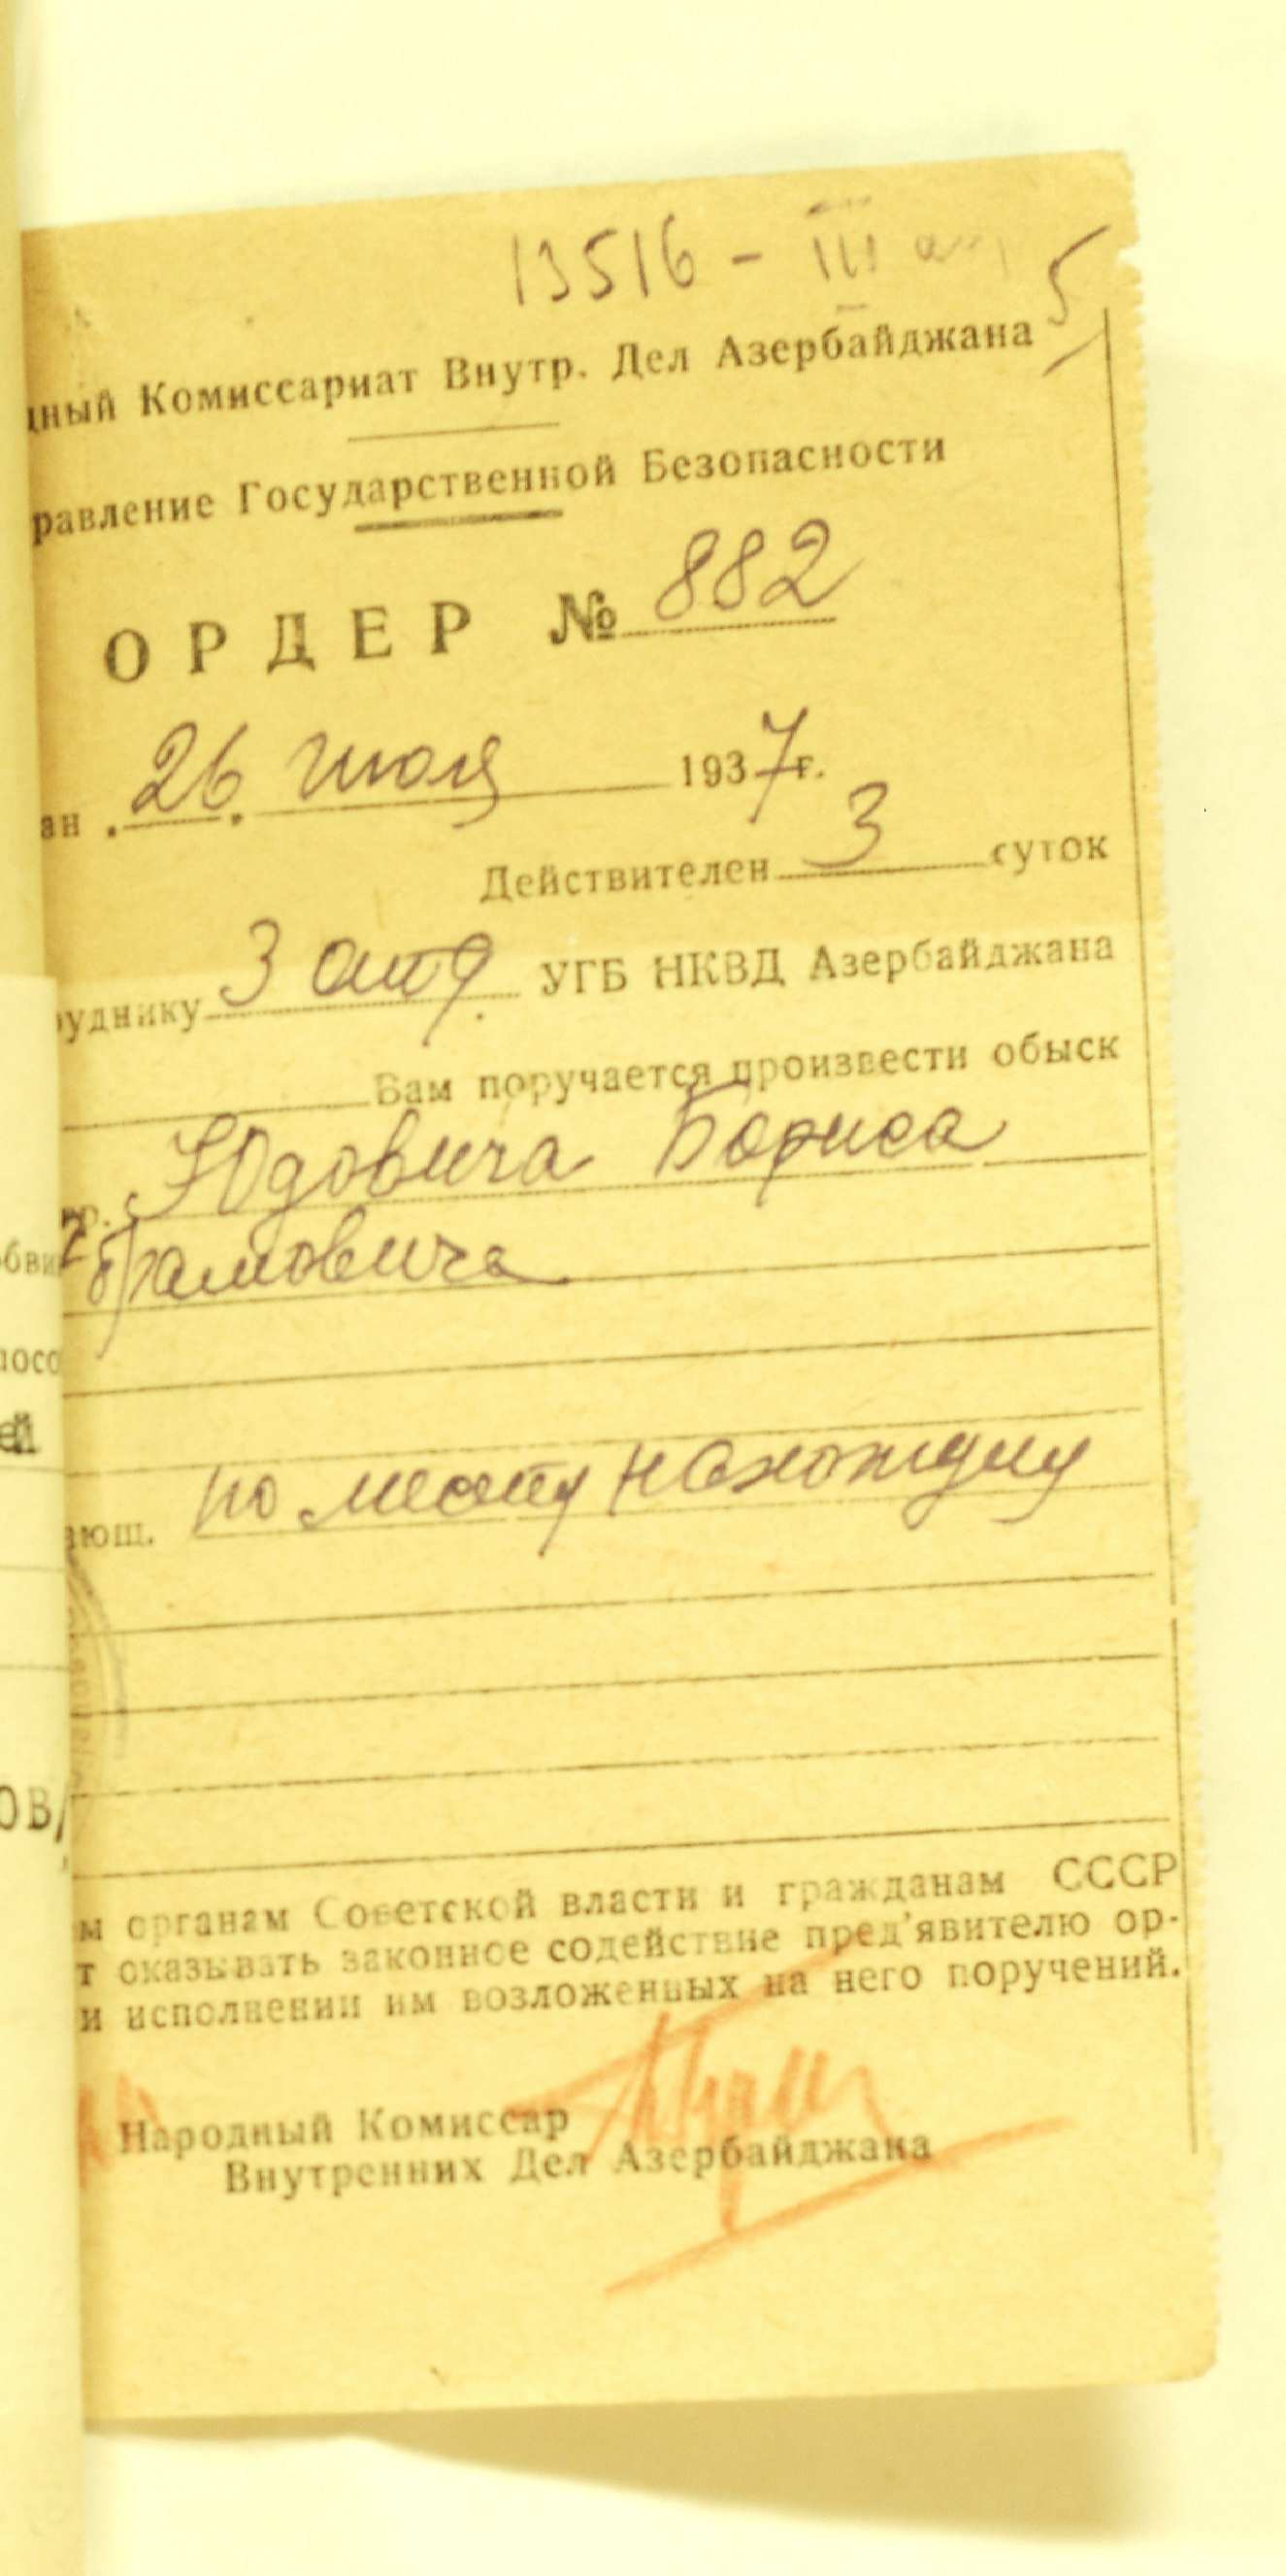 13516 - III
5
дный Комиссариат Внутр. Дел Азербайджана
равление Государственной Безопасности
ОРДЕР № 882
ан "26" июля 1937 г.
Действителен 3 суток
руднику 3 отд. УГБ НКВД Азербайджана
Вам поручается произвести обыск
гр. Юдовича Бориса
брамовича
ающ. по месту нахожд
м органам Советской власти и гражданам СССР
т оказывать законное содействие пред'явителю ор-
и исполнении им возложенных на него поручений.
Народный Комиссар
Внутренних Дел Азербайджана
обви
посо
ей
ОВ/